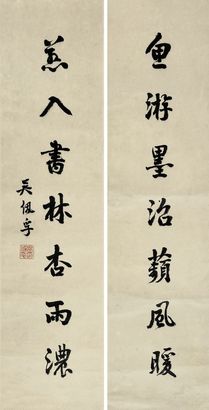 魚游墨沼蘋風暖
燕入書林杏雨濃
吳佩孚